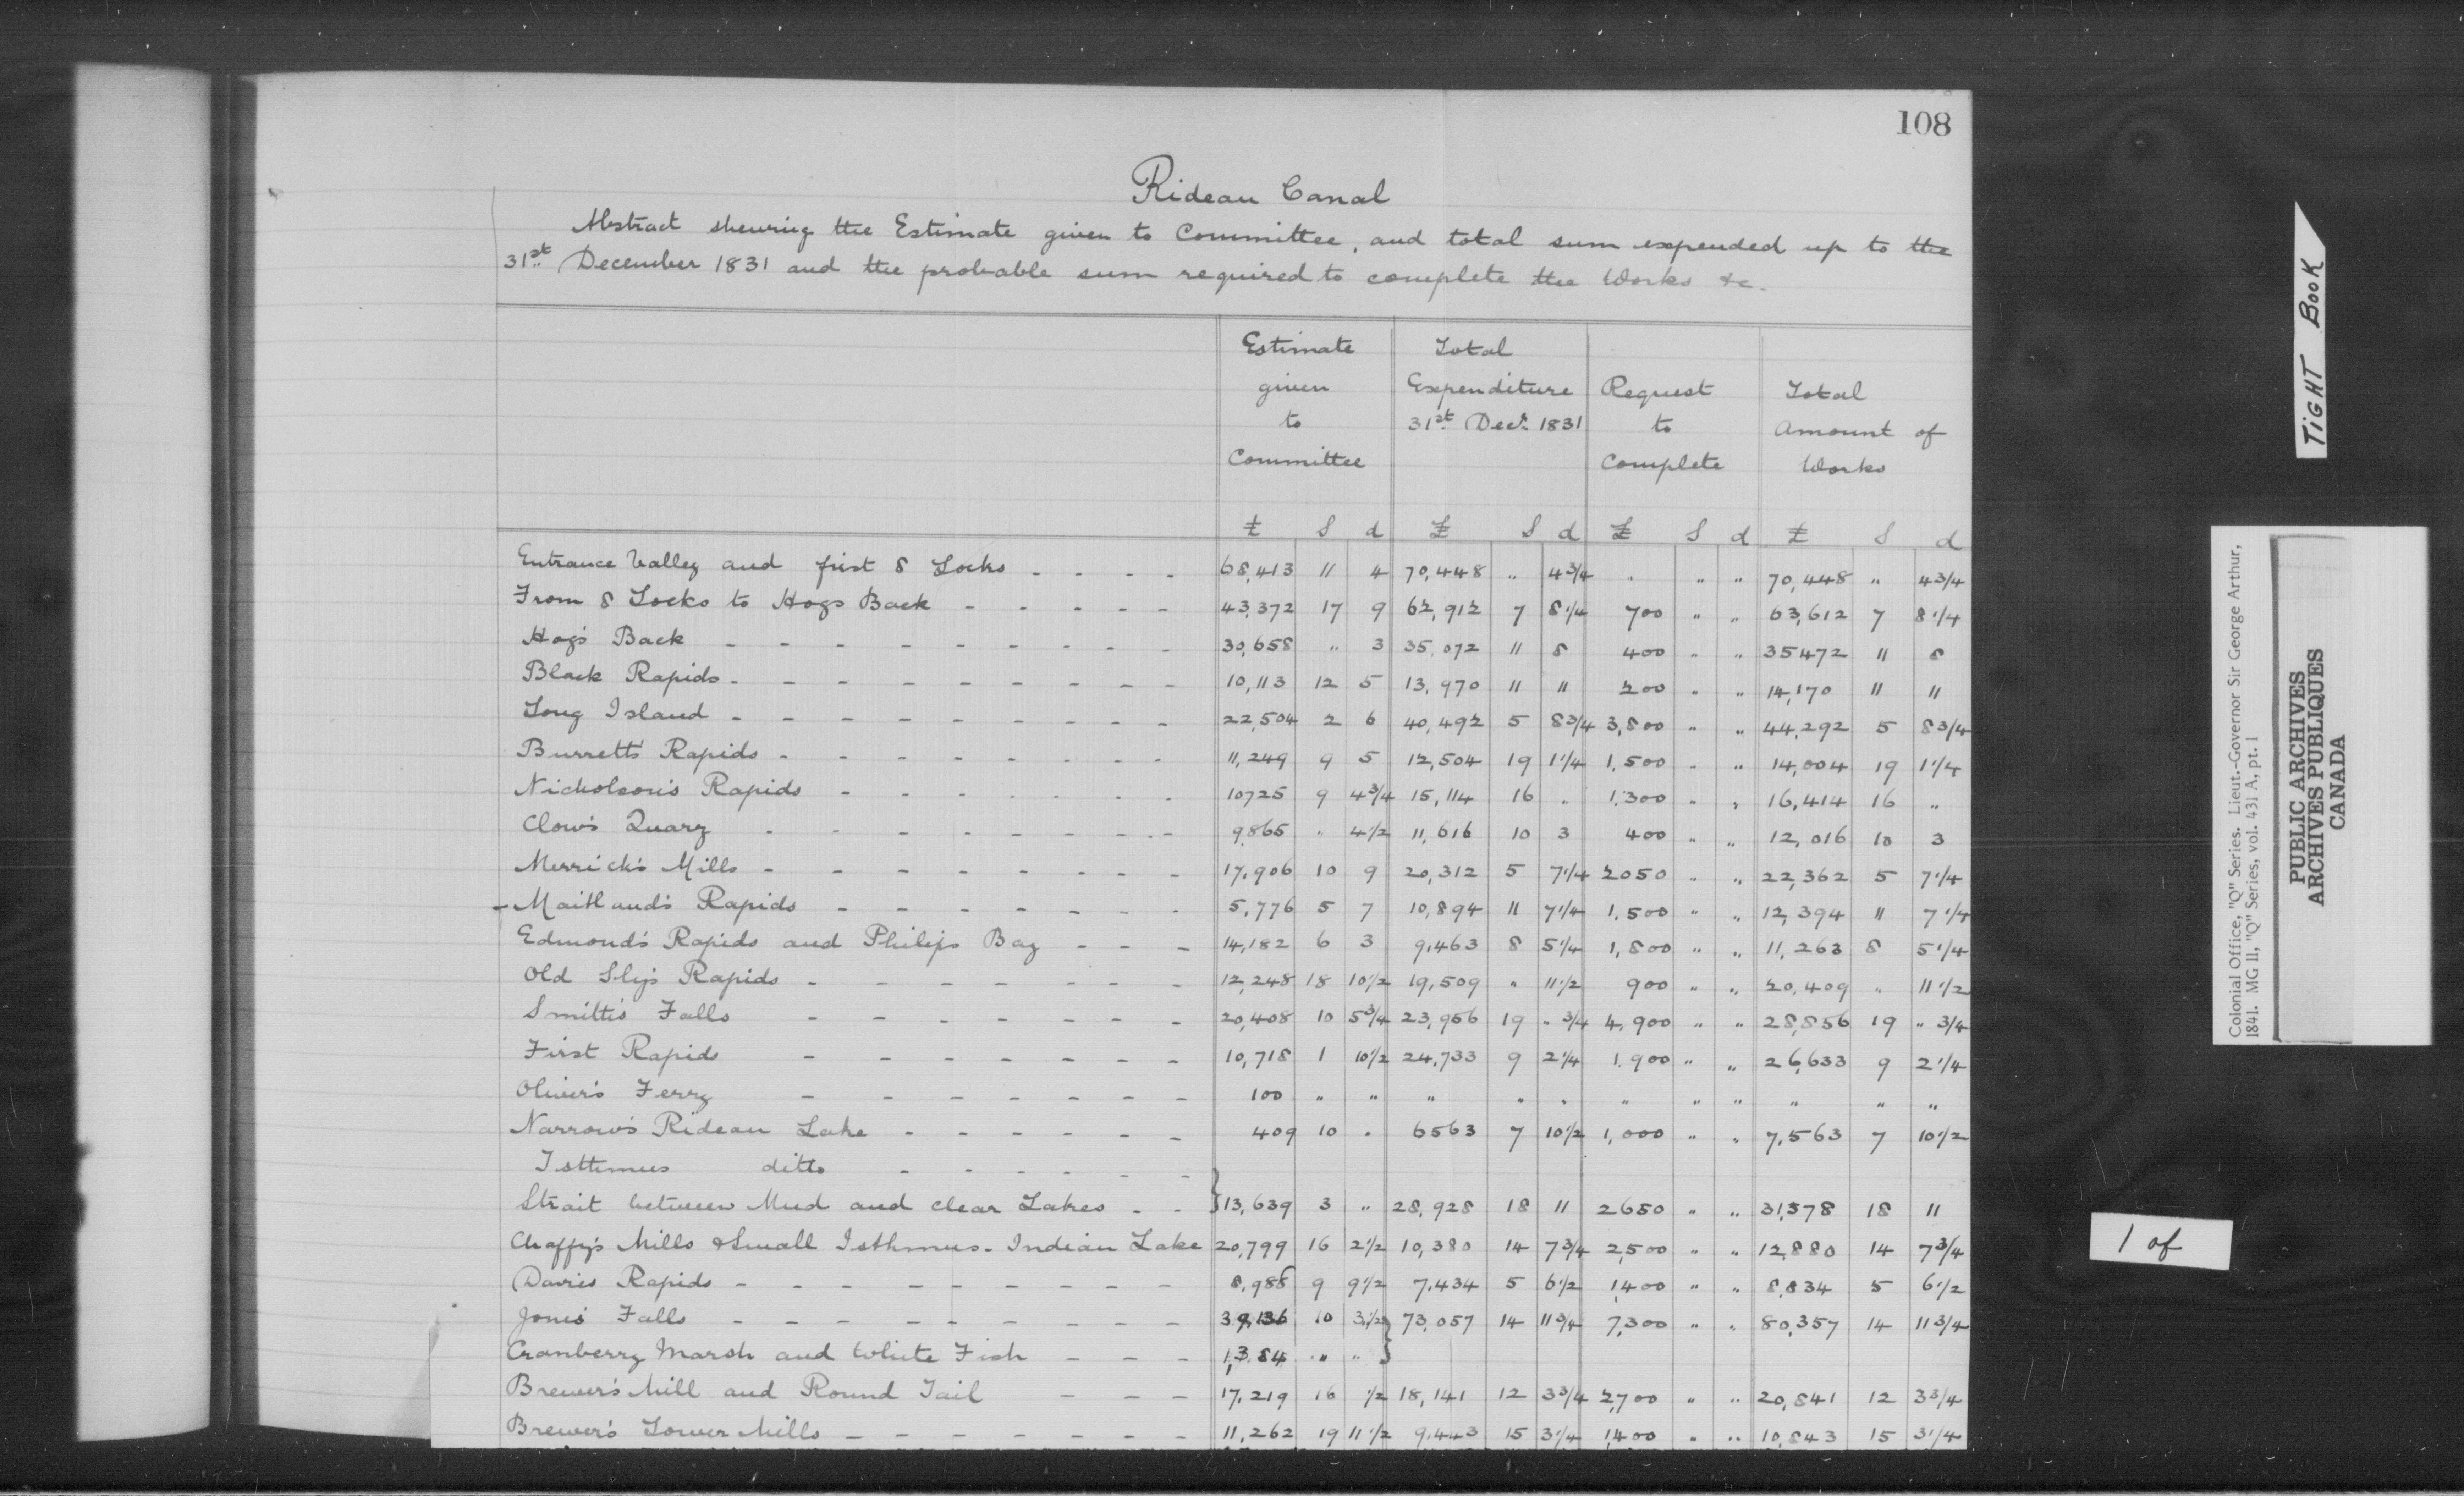 108
Rideau Canal
Abstract shewing the Estimate given to Committee, and total sum expended up to the
31st December 1831 and the probable sum required to complete the Works &c.
Estimate given to Committee | Total Expenditure 31st Decr. 1831 | Request to Complete | Total Amount of Works
£ S d £ S d £ S d £ S d
Entrance Valley and first 8 Locks - - - - 68,413 11 4 70,448 " 4 3/4 " " " 70,448 " 4 3/4
From 8 Locks to Hogs Back - - - - - 43,372 17 9 62,912 7 8 1/4 700 " " 63,612 7 8 1/4
Hog's Back - - - - - - - - - 30,658 " 3 35,072 11 8 400 " " 35472 11 8
Black Rapids - - - - - - - - - 10,113 12 5 13,970 11 11 200 " " 14,170 11 11
Long Island - - - - - - - - - 22,504 2 6 40,492 5 8 3/4 3,800 " " 44,292 5 8 3/4
Burretts Rapids - - - - - - - - 11,249 9 5 12,504 19 1 1/4 1,500 " " 14,004 19 1 1/4
Nicholson's Rapids - - - - - - - 10725 9 4 3/4 15,114 16 " 1,300 " " 16,414 16 "
Clow's Quary - - - - - - - - - 9,865 " 4 1/2 11,616 10 3 400 " " 12,016 10 3
Merrick's Mills - - - - - - - - 17,906 10 9 20,312 5 7 1/4 2050 " " 22,362 5 7 1/4
- Maitland's Rapids - - - - - - - 5,776 5 7 10,894 11 7 1/4 1,500 " " 12,394 11 7 1/4
Edmond's Rapids and Philips Bay - - - 14,182 6 3 9,463 8 5 1/4 1,800 " " 11,263 8 5 1/4
Old Slys Rapids - - - - - - - 12,248 18 10 1/2 19,509 " 11 1/2 900 " " 20,409 " 11 1/2
Smith's Falls - - - - - - - 20,408 10 5 3/4 23,956 19 " 3/4 4,900 " " 28,856 19 " 3/4
First Rapids - - - - - - - 10,718 1 10 1/2 24,733 9 2 1/4 1,900 " " 26,633 9 2 1/4
Oliver's Ferry - - - - - - - 100 " " " " " " " " " " "
Narrow's Rideau Lake - - - - - - 409 10 " 6563 7 10 1/2 1,000 " " 7,563 7 10 1/2
Isthmus ditto - - - - - -
Strait between Mud and clear Lakes - - } 13,639 3 " 28,928 18 11 2650 " " 31,578 18 11
Chaffy's Mills & Small Isthmus - Indian Lake 20,799 16 2 1/2 10,380 14 7 3/4 2,500 " " 12,880 14 7 3/4
Davies Rapids - - - - - - - - - 8,988 9 9 1/2 7,434 5 6 1/2 1,400 " " 8,834 5 6 1/2
Jones' Falls - - - - - - - - - 10 3 1/2 } 73,057 14 11 3/4 7,300 " " 80,357 14 11 3/4
Cranberry Marsh and White Fish - - - 1,384 " "
Brewer's Mill and Round Tail - - - 17,219 16 1/2 18,141 12 3 3/4 2,700 " " 20,841 12 3 3/4
Brewer's Lower Mills - - - - - - - 11,262 19 11 1/2 9,443 15 3 1/4 1,400 " " 10,843 15 3 1/4
TIGHT BOOK
Colonial Office, "Q" Series. Lieut.-Governor Sir George Arthur,
1841. MG 11, "Q" Series, vol. 431 A, pt. 1
PUBLIC ARCHIVES
ARCHIVES PUBLIQUES
CANADA
1 of